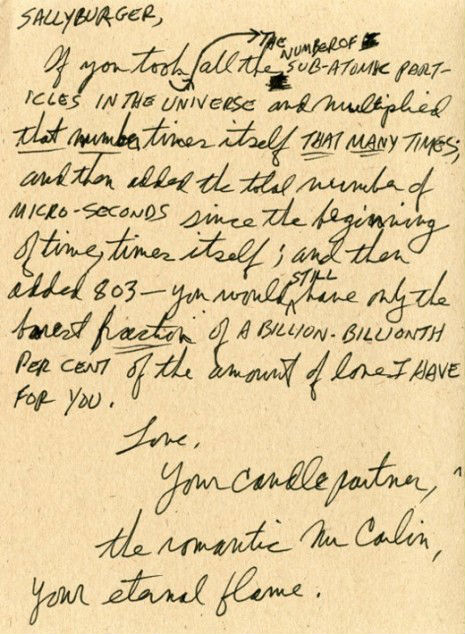 SALLYBURGER,
THE
NUMBER OF
If you took all the SUB-ATOMIC PART-
ICLES IN THE UNIVERSE and multiplied
that number times itself THAT MANY TIMES;
and then added the total number of
MICRO-SECONDS since the beginning
of time, times itself; and then
STILL
added 803 — you would have only the
barest fraction of A BILLION-BILLIONTH
PER CENT of the amount of love I HAVE
FOR YOU.
Love,
Your candle partner,
the romantic Mr Carlin,
Your eternal flame.